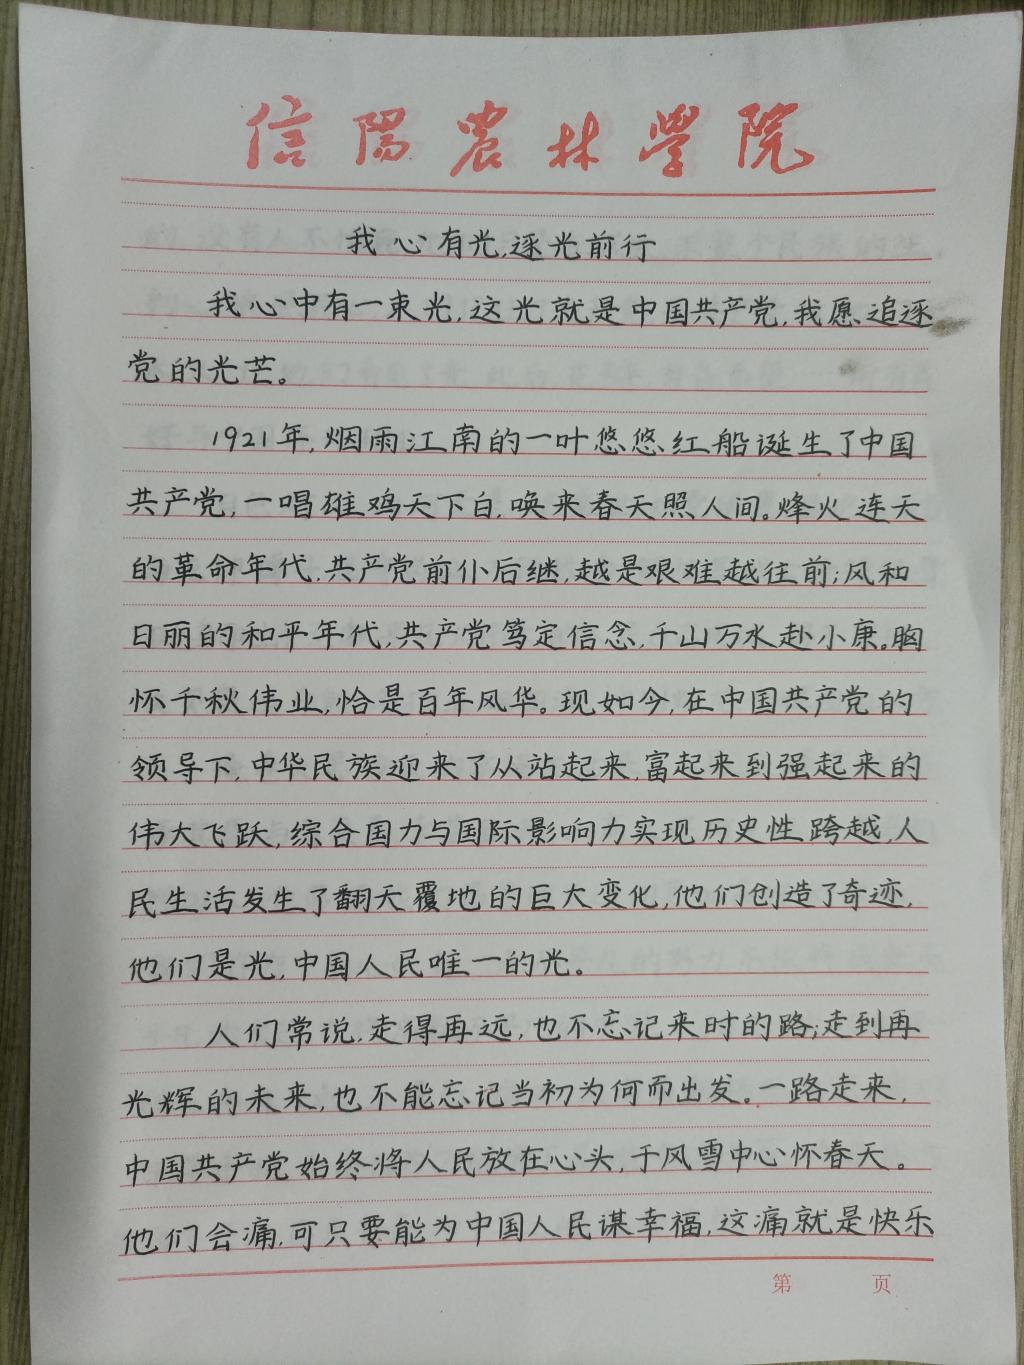 信阳农林学院
我心有光,逐光前行
我心中有一束光,这光就是中国共产党,我愿追逐
党的光芒。
1921年,烟雨江南的一叶悠悠红船诞生了中国
共产党,一唱雄鸡天下白,唤来春天照人间。烽火连天
的革命年代,共产党前仆后继,越是艰难越往前;风和
日丽的和平年代,共产党笃定信念,千山万水赴小康。胸
怀千秋伟业,恰是百年风华。现如今,在中国共产党的
领导下,中华民族迎来了从站起来,富起来到强起来的
伟大飞跃,综合国力与国际影响力实现历史性跨越,人
民生活发生了翻天覆地的巨大变化,他们创造了奇迹,
他们是光,中国人民唯一的光。
人们常说,走得再远,也不忘记来时的路;走到再
光辉的未来,也不能忘记当初为何而出发。一路走来,
中国共产党始终将人民放在心头,于风雪中心怀春天。
他们会痛,可只要能为中国人民谋幸福,这痛就是快乐
第 页